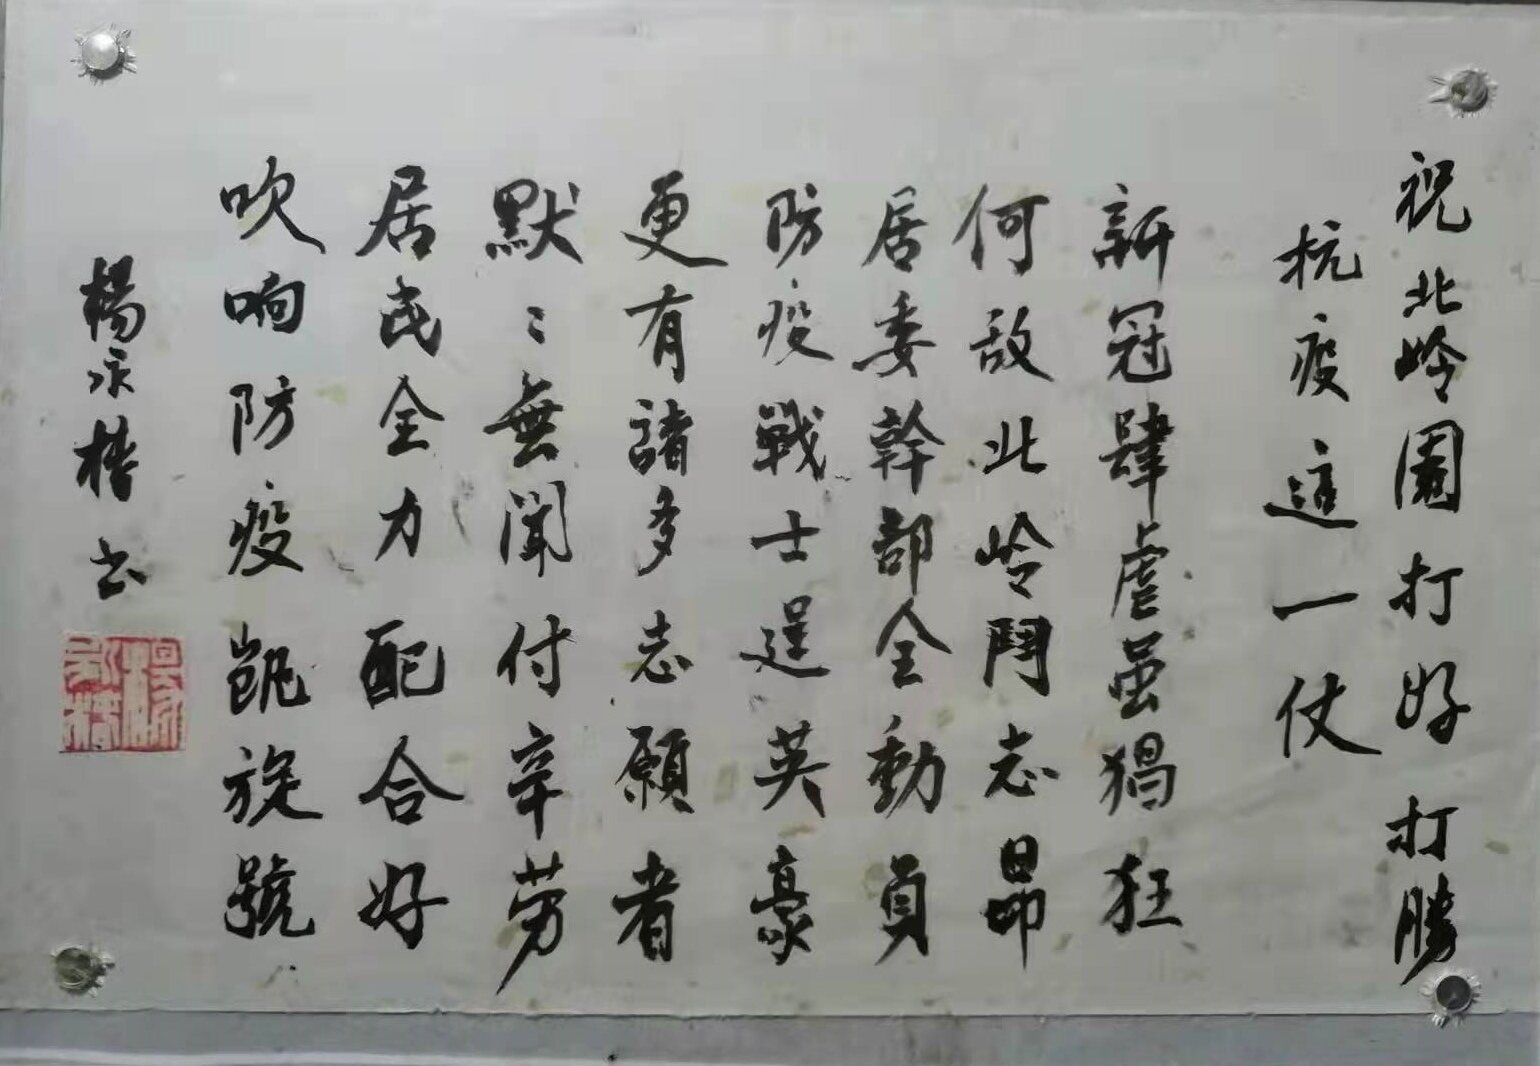 祝北岭園打好打勝
抗疫這一仗
新冠肆虐虽猖狂
何敌北岭鬥志昂
居委幹部全動員
防疫戰士逞英豪
更有諸多志願者
默〻無聞付辛劳
居民全力配合好
吹响防疫凱旋號
楊永书